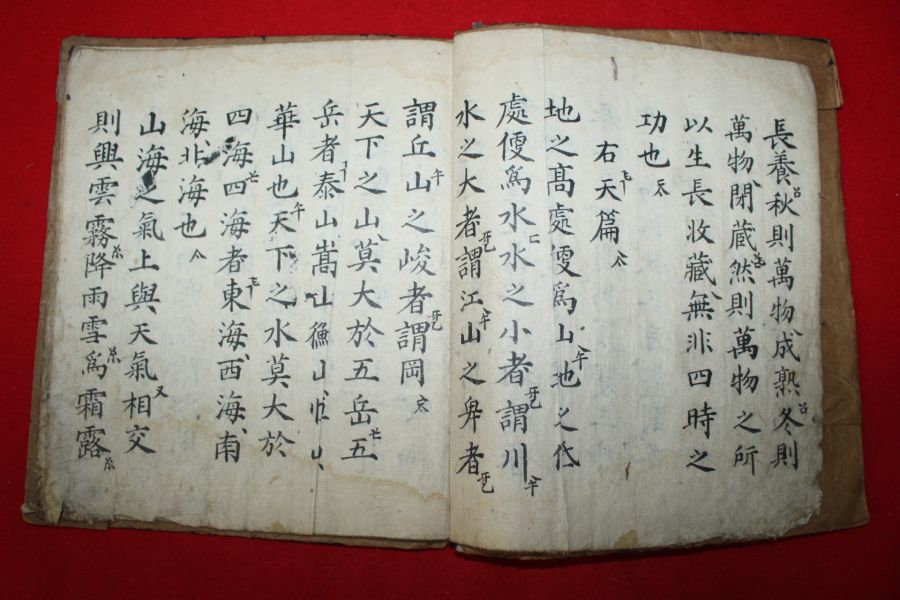 長養秋則萬物成熟冬則
萬物閉蔵然則萬物之所
以生長收藏無非四時之
功也
右天篇
地之高處便爲山地之低
處便爲水水之小者謂川
水之大者謂江山之卑者
謂丘山之峻者謂岡
天下之山莫大於五岳五
岳者泰山嵩山衡山恒山
華山也天下之水莫大於
四海四海者東海西海南
海北海也
山海之氣上與天氣相交
則興雲霧降雨雪爲霜露